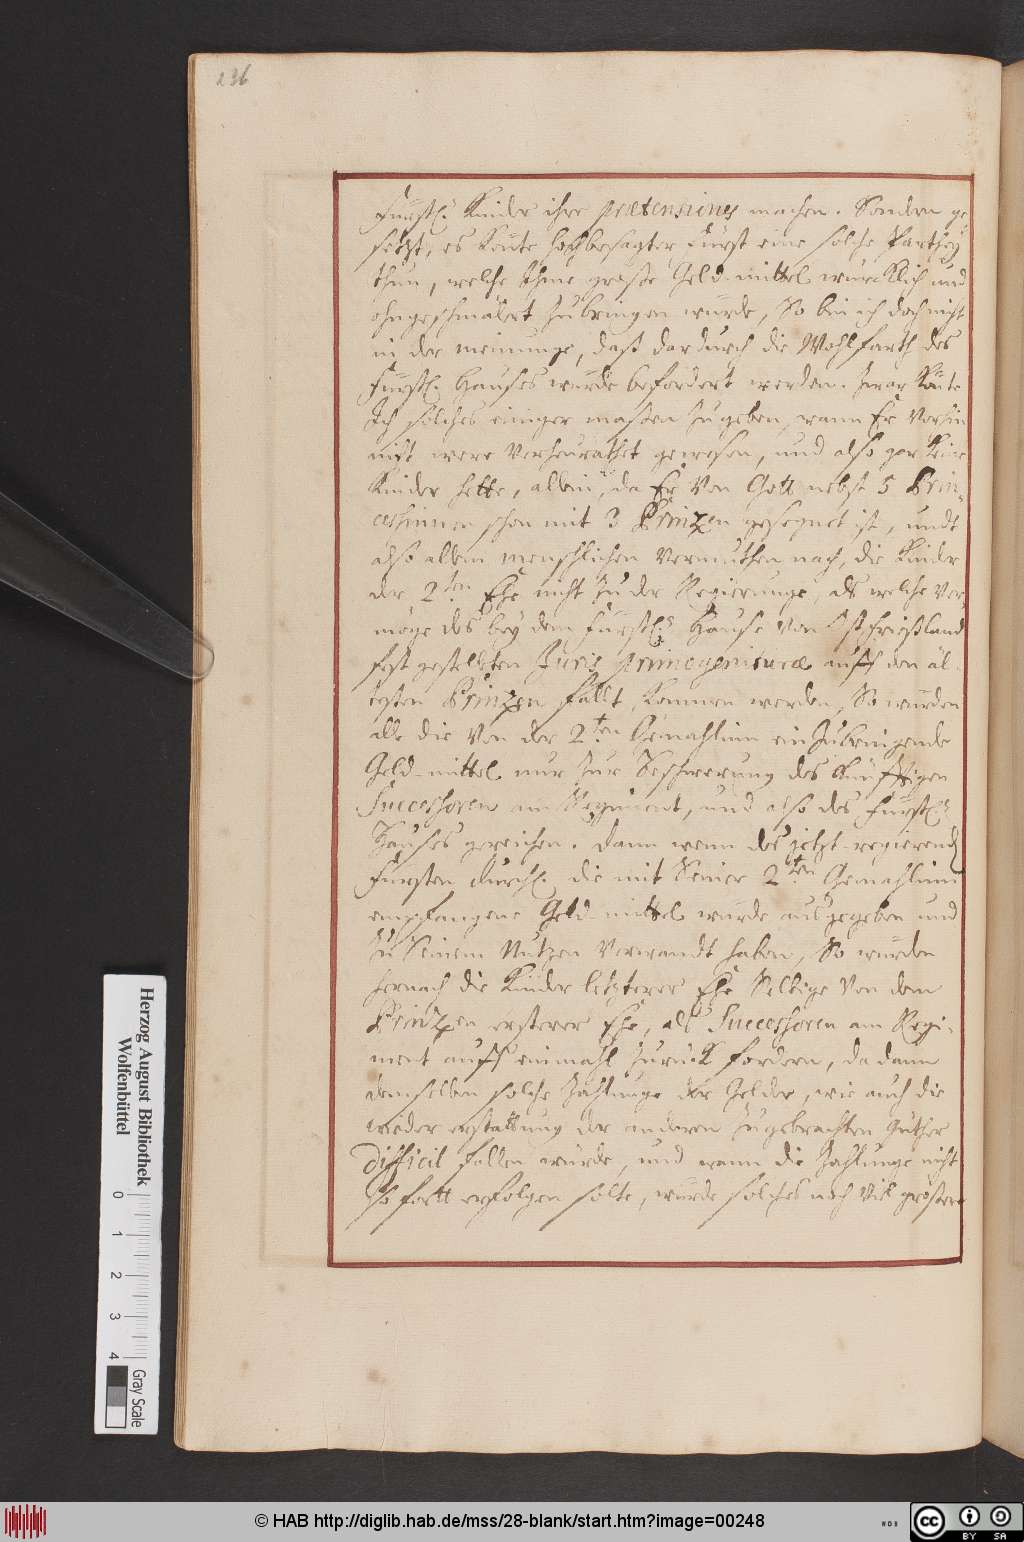 236
Fürstl: Kinder ihre prætensiones machen. Sondern ge
setzt, es könte hochbesagter Fürst eine solche Parthey
thun, welche Ihme große Geld-mittel würcklich und
ohngeschmälert zubringen würde, So bin ich doch nicht
in der meinunge, daß dardurch die Wohlfarth des
Fürstl. Hauses würde befordert werden. Zwar könte
Ich solches einiger maßen zugeben, wann Er vorhin
nicht were verheurathet gewesen, und also gar keine
Kinder hette, allein, da Er von Gott nebst 5 Prin-
cessinnen schon mit 3 Prinzen gesegnet ist, undt
also allem menschlichen vermuthen nach, die Kinder
der 2ten Ehe nicht zu der Regierunge, als welche ver-
möge des bey dem Fürstl. Hause von Ostfrießland
fest gestellten Juris primogenituræ auff den äl-
testen Prinzen fält, kommen werden, So würden
alle die von der 2ten Gemahlinn einzubringende
Geld-mittel nur zur Beschwerung des künfftigen
Successoren am Regiment, und also des Fürstl:
Hauses gereichen. Dann wenn des jetzt-regierend
Fürsten Durchl. die mit Seiner 2ten Gemahlinn
empfangene Geld-mittel würde ausgegeben und
zu Seinem Nutzen verwandt haben, So würden
hernach die Kinder letzterer Ehe Selbige von dem
Prinzen ersterer Ehe, als Successoren am Regi-
ment auff einmahl zurück fordern, da dann
demselben solche Zahlunge der Gelder, wie auch die
wieder erstattung der anderen zugebrachten Güther
difficil fallen würde, und wann die Zahlunge nicht
so fortt erfolgen solte, würde solches noch viel größere
Herzog August Bibliothek
Wolfenbüttel
0 1 2 3 4
Gray Scale
© HAB http://diglib.hab.de/mss/28-blank/start.htm?image=00248
WDB
CC BY SA